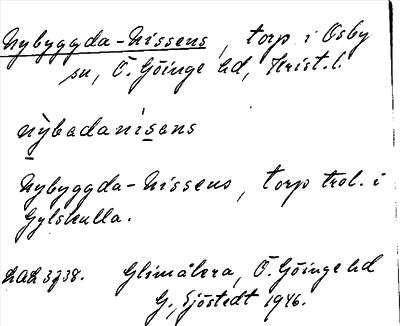 Nybyggda-Nissens, torp i Osby
sn, Ö. Göinge hd, Krist. l.
nỳbadanisens
Nybyggda-Nissens, torp trol. i
Gylskulla.
LAL 3938. Glimåkra, Ö. Göinge hd
G. Sjöstedt 1946.